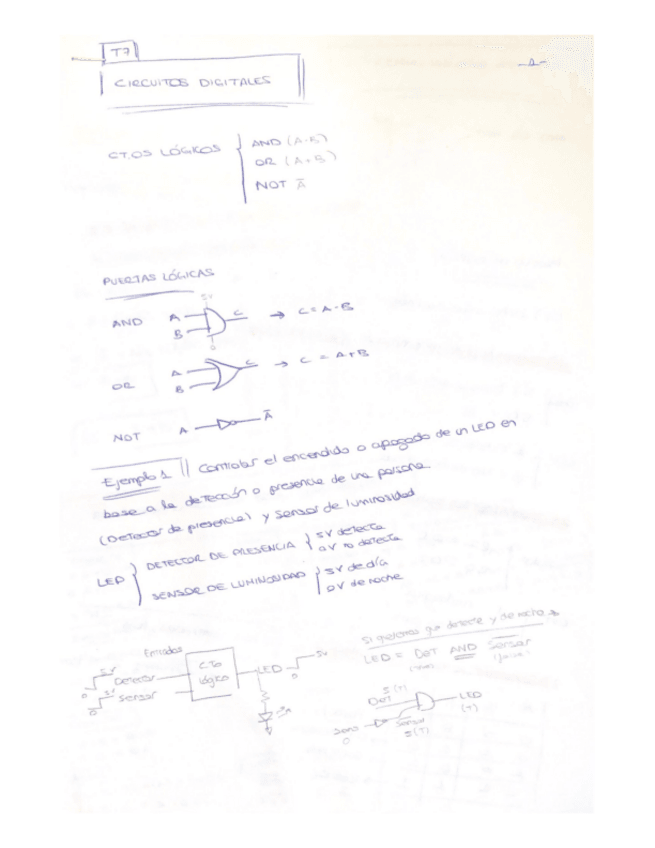 T7
-1-
CIRCUITOS DIGITALES
CT.OS LÓGICOS
AND (A·B)
OR (A+B)
NOT A̅
PUERTAS LÓGICAS
5V
AND A B C → C = A·B
0
OR A B C → C = A+B
NOT A A̅
Ejemplo 1 || Controlar el encendido o apagado de un LED en
base a la detección o presencia de una persona
(Detector de presencia) y sensor de luminosidad
LED
DETECTOR DE PRESENCIA
5V detecta
0V no detecta
SENSOR DE LUMINOSIDAD
5V de día
0V de noche
Si queremos que detecte y de noche
LED = DET AND S̅e̅n̅s̅o̅r̅
Entradas
5V
0
Detector
5V
0
Sensor
CTO
lógico
LED
5V
0
5 (T)
DET
LED
(T)
0
S̅e̅n̅s̅o̅r̅
5 (T)